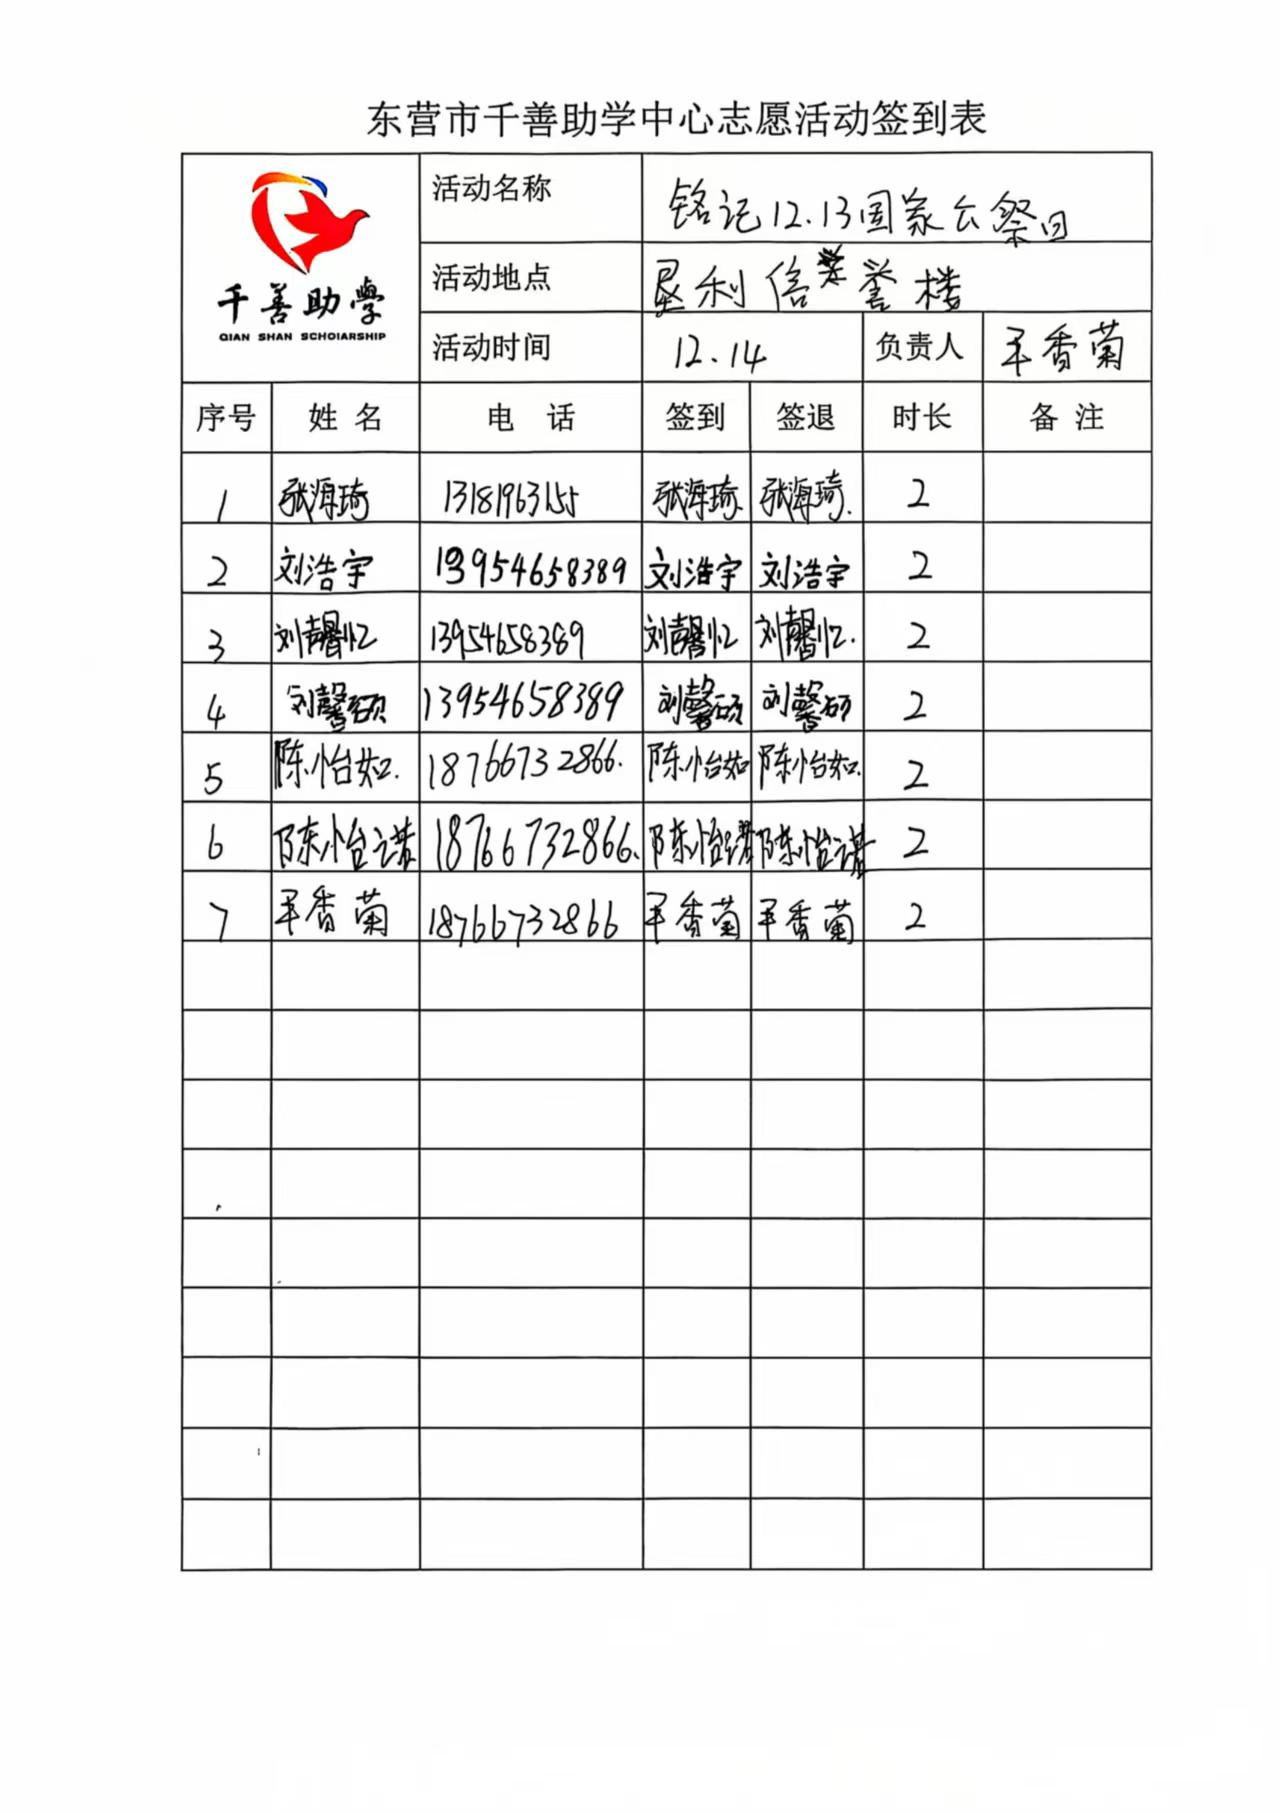 东营市千善助学中心志愿活动签到表
千善助学
QIAN SHAN SCHOIARSHIP
活动名称 铭记12.13国家公祭日
活动地点 垦利信誉楼
活动时间 12.14 负责人 平香菊
序号 姓名 电话 签到 签退 时长 备注
1 张海琦 13181963155 张海琦. 张海琦. 2
2 刘浩宇 13954658389 刘浩宇 刘浩宇 2
3 刘馨忆 13954658389 刘馨忆 刘馨忆. 2
4 刘馨硕 13954658389 刘馨硕 刘馨硕 2
5 陈怡如. 18766732866. 陈怡如 陈怡如. 2
6 陈怡诺 18766732866. 陈怡诺 陈怡诺 2
7 平香菊 18766732866 平香菊 平香菊 2